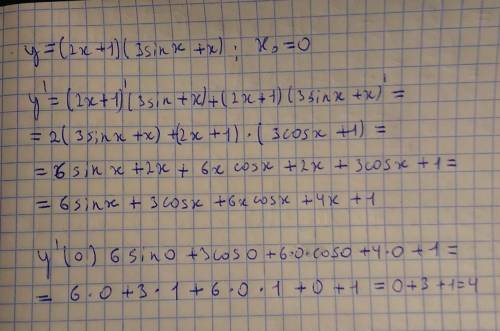 y=(2x+1)(3sinx+x); x₀=0
y'=(2x+1)'(3sin+x)+(2x+1)(3sinx+x)'=
=2(3sinx+x)+(2x+1)·(3cosx+1)=
=6sinx+2x+6xcosx+2x+3cosx+1=
=6sinx+3cosx+6xcosx+4x+1
y'(0) 6sin0+3cos0+6·0·cos0+4·0+1=
= 6·0+3·1+6·0·1+0+1=0+3+1=4